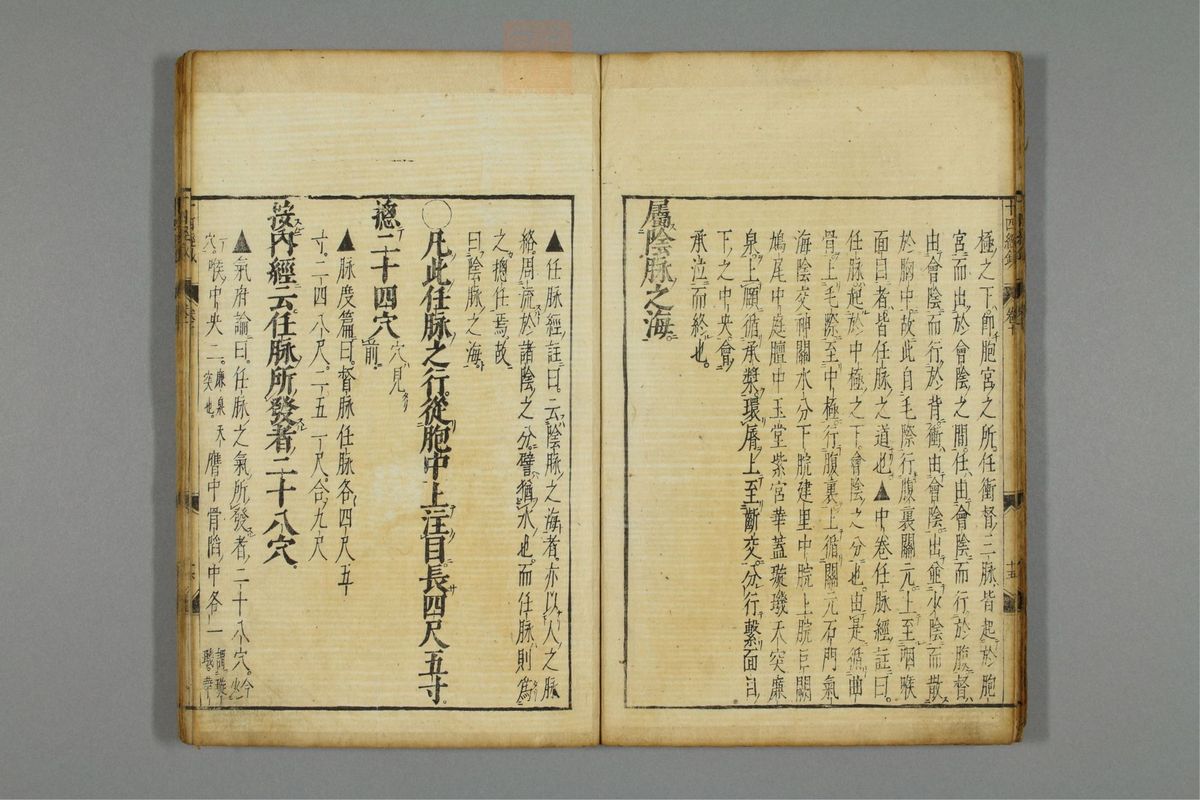 極之下即胞宮之所任衝督三脉皆起於胞
宮而出於會陰之間任由會陰而行於腹督
由會陰而行於背衝由會陰出並少陰而散
於胸中故此自毛際行腹裏關元上至咽喉
面目者皆任脉之道也▲中卷任脉經註曰
任脉起於中極之下會陰之分也由是循曲
骨上毛際至中極行腹裏上循關元石門氣
海陰交神關水分下脘建里中脘上脘巨闕
鳩尾中庭膻中玉堂紫宮華蓋璇璣天突廉
泉上頤循承漿環唇上至齗交分行繫面目
下之中央會
承泣而終也
屬陰脉之海
▲任脉經註曰云陰脉之海者亦以人之脉
絡周流於諸陰之分譬猶水也而任脉則爲
之摠任焉故
曰陰脉之海
○凡此任脉之行從胞中上注目長四尺五寸
摠二十四穴 穴見前
▲脉度篇曰督脉任脉各四尺五
寸二四八尺二五一尺合九尺
按內經云任脉所發者二十八穴
▲氣府論曰任脉之氣所發者二十八穴今
穴喉中央二廉泉天突也膺中骨陷中各一謂璇